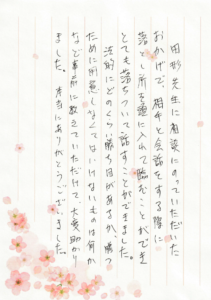 田形先生に相談にのっていただいた
おかげで、相手と会話をする際に
落とし所を頭に入れて臨むことができ
とても落ちついて話すことができました。
法的にどのくらい勝ち目があるか、勝つ
ために用意しなくてはいけないものは何か
など事前に教えていただけて、大変助かり
ました。本当にありがとうございました。